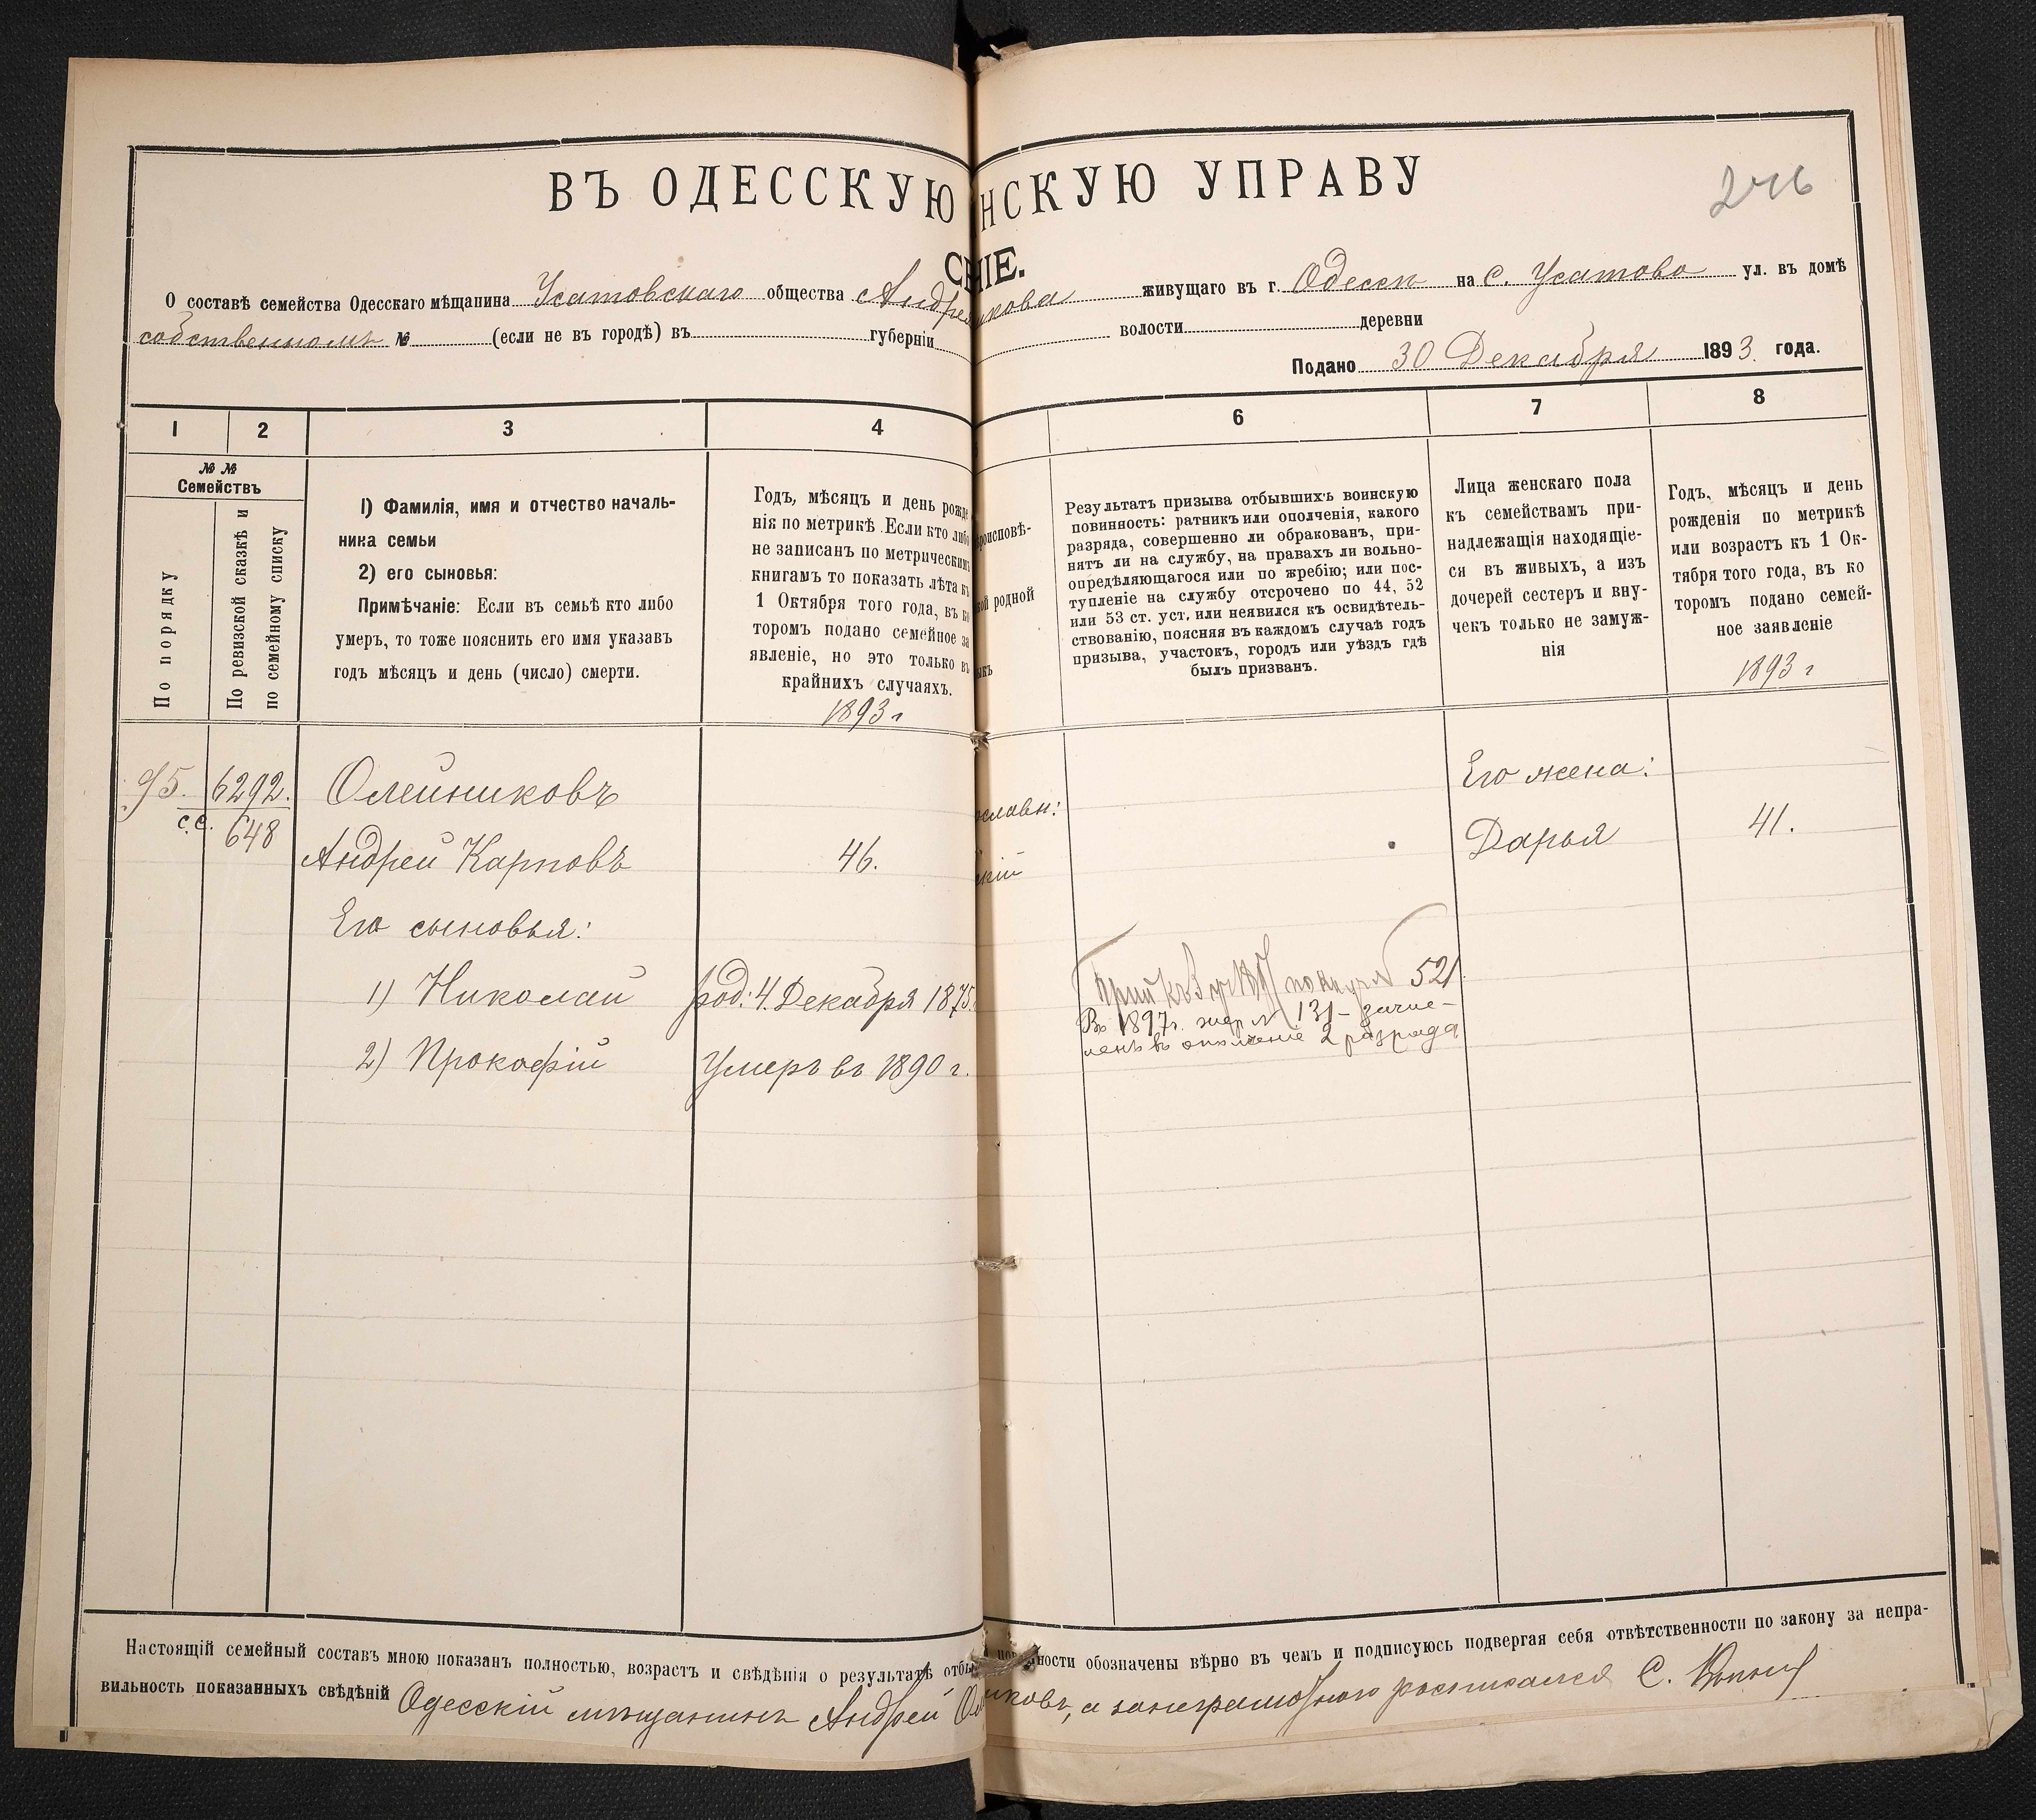 ВЪ ОДЕССКУЮ НСКУЮ УПРАВУ
246
НІЕ.
О составѣ семейства Одесскаго мѣщанина Усатовскаго общества Андрея икова живущаго въ г. Одессѣ на с. Усатово ул. въ домѣ
собственномъ № (если не въ городѣ) въ губерніи волости деревни
Подано 30 Декабря 1893 года.
1 2 3 4 6 7 8
№ №
Семействъ
По порядку
По ревизской сказкѣ и
по семейному списку
1) Фамилія, имя и отчество началь-
ника семьи
2) его сыновья:
Примѣчаніе: Если въ семьѣ кто либо
умеръ, то тоже пояснить его имя указавъ
годъ мѣсяцъ и день (число) смерти.
Годъ, мѣсяцъ и день рожде
нія по метрикѣ. Если кто либо
не записанъ по метрическимъ
книгамъ то показать лѣта къ
1 Октября того года, въ ко
торомъ подано семейное за
явленіе, но это только въ
крайнихъ случаяхъ.
1893 г
роисповѣ-
ой родной
ыкъ
Результатъ призыва отбывшихъ воинскую
повинность: ратникъ или ополченія, какого
разряда, совершенно ли обракованъ, при-
нятъ ли на службу, на правахъ ли вольно-
опредѣляющагося или по жребію; или пос-
тупленіе на службу отсрочено по 44, 52
или 53 ст. уст. или неявился къ освидѣтель-
ствованію, поясняя въ каждомъ случаѣ годъ
призыва, участокъ, городъ или уѣздъ гдѣ
былъ призванъ.
Лица женскаго пола
къ семействамъ при-
надлежащія находящіе-
ся въ живыхъ, а изъ
дочерей сестеръ и вну-
чекъ только не замуж-
нія
Годъ, мѣсяцъ и день
рожденія по метрикѣ
или возрастъ къ 1 Ок-
тября того года, въ ко
торомъ подано семей-
ное заявленіе
1893 г
95. 6292. Олейниковъ ославн: Его жена:
с.с. 648
Андрей Карповъ 46. скій Дарья 41.
Его сыновья:
1) Николай род: 4. Декабря 1875. 521.
Въ 1897 г. жер № 131 – зачис-
ленъ въ ополченіе 2 разряда
2) Прокофій Умеръ въ 1890 г.
Настоящій семейный составъ мною показанъ полностью, возрастъ и свѣдѣнія о результатѣ отбы ности обозначены вѣрно въ чемъ и подписуюсь подвергая себя отвѣтственности по закону за непра-
вильность показанныхъ свѣдѣній Одесскій мѣщанинъ Андрей Ол иковъ, а занеграмотнаго росписался С.